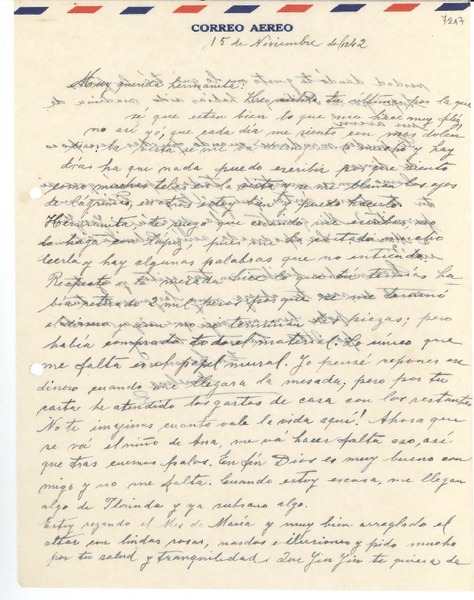 7217
CORREO AEREO
15 de Noviembre de 1942
Muy querida hermanita:
Hace mucho tu última por la que
sé que están bien lo que me hace muy feliz,
no así yo, que cada día me siento con mas dolen
cias, la vista se me mucho y hay
días ha que nada puedo escribir porque siento
como muchas telas en la vista y se me llenan los ojos
de lágrimas, cuando estoy bien puedo hacerlo.
Hermanita, te ruego que cuando me escribas no
lo haga con lápiz, pues me ha costado mucho
leerla y hay algunas palabras que no entiendo.
Respecto a la mesada hice lo que tú ha
bía retirado 2 mil pesos porque me
el dinero y aun no se terminan las piezas; pero
había comprado todo el material. Lo único que
me falta es el papel mural. Yo pensé reponer ese
dinero cuando llegara la mesada, pero por tu
carta he atendido los gastos de casa con los restantes
No te imaginas cuanto vale la vida aquí! Ahora que
se vá el niño de Ana, me va hacer falta eso, así
que tras cuernos palos. En fin Dios es muy bueno con
migo y no me falta. Cuando estoy escasa, me llegan
algo de Florinda y ya subsano algo.
Estoy rezando el Mes de María y muy bien arreglado el
altar con lindas rosas, nardos e ilusiones y pido mucho
por tu salud y tranquilidad. Que Yin Yin te quiera de